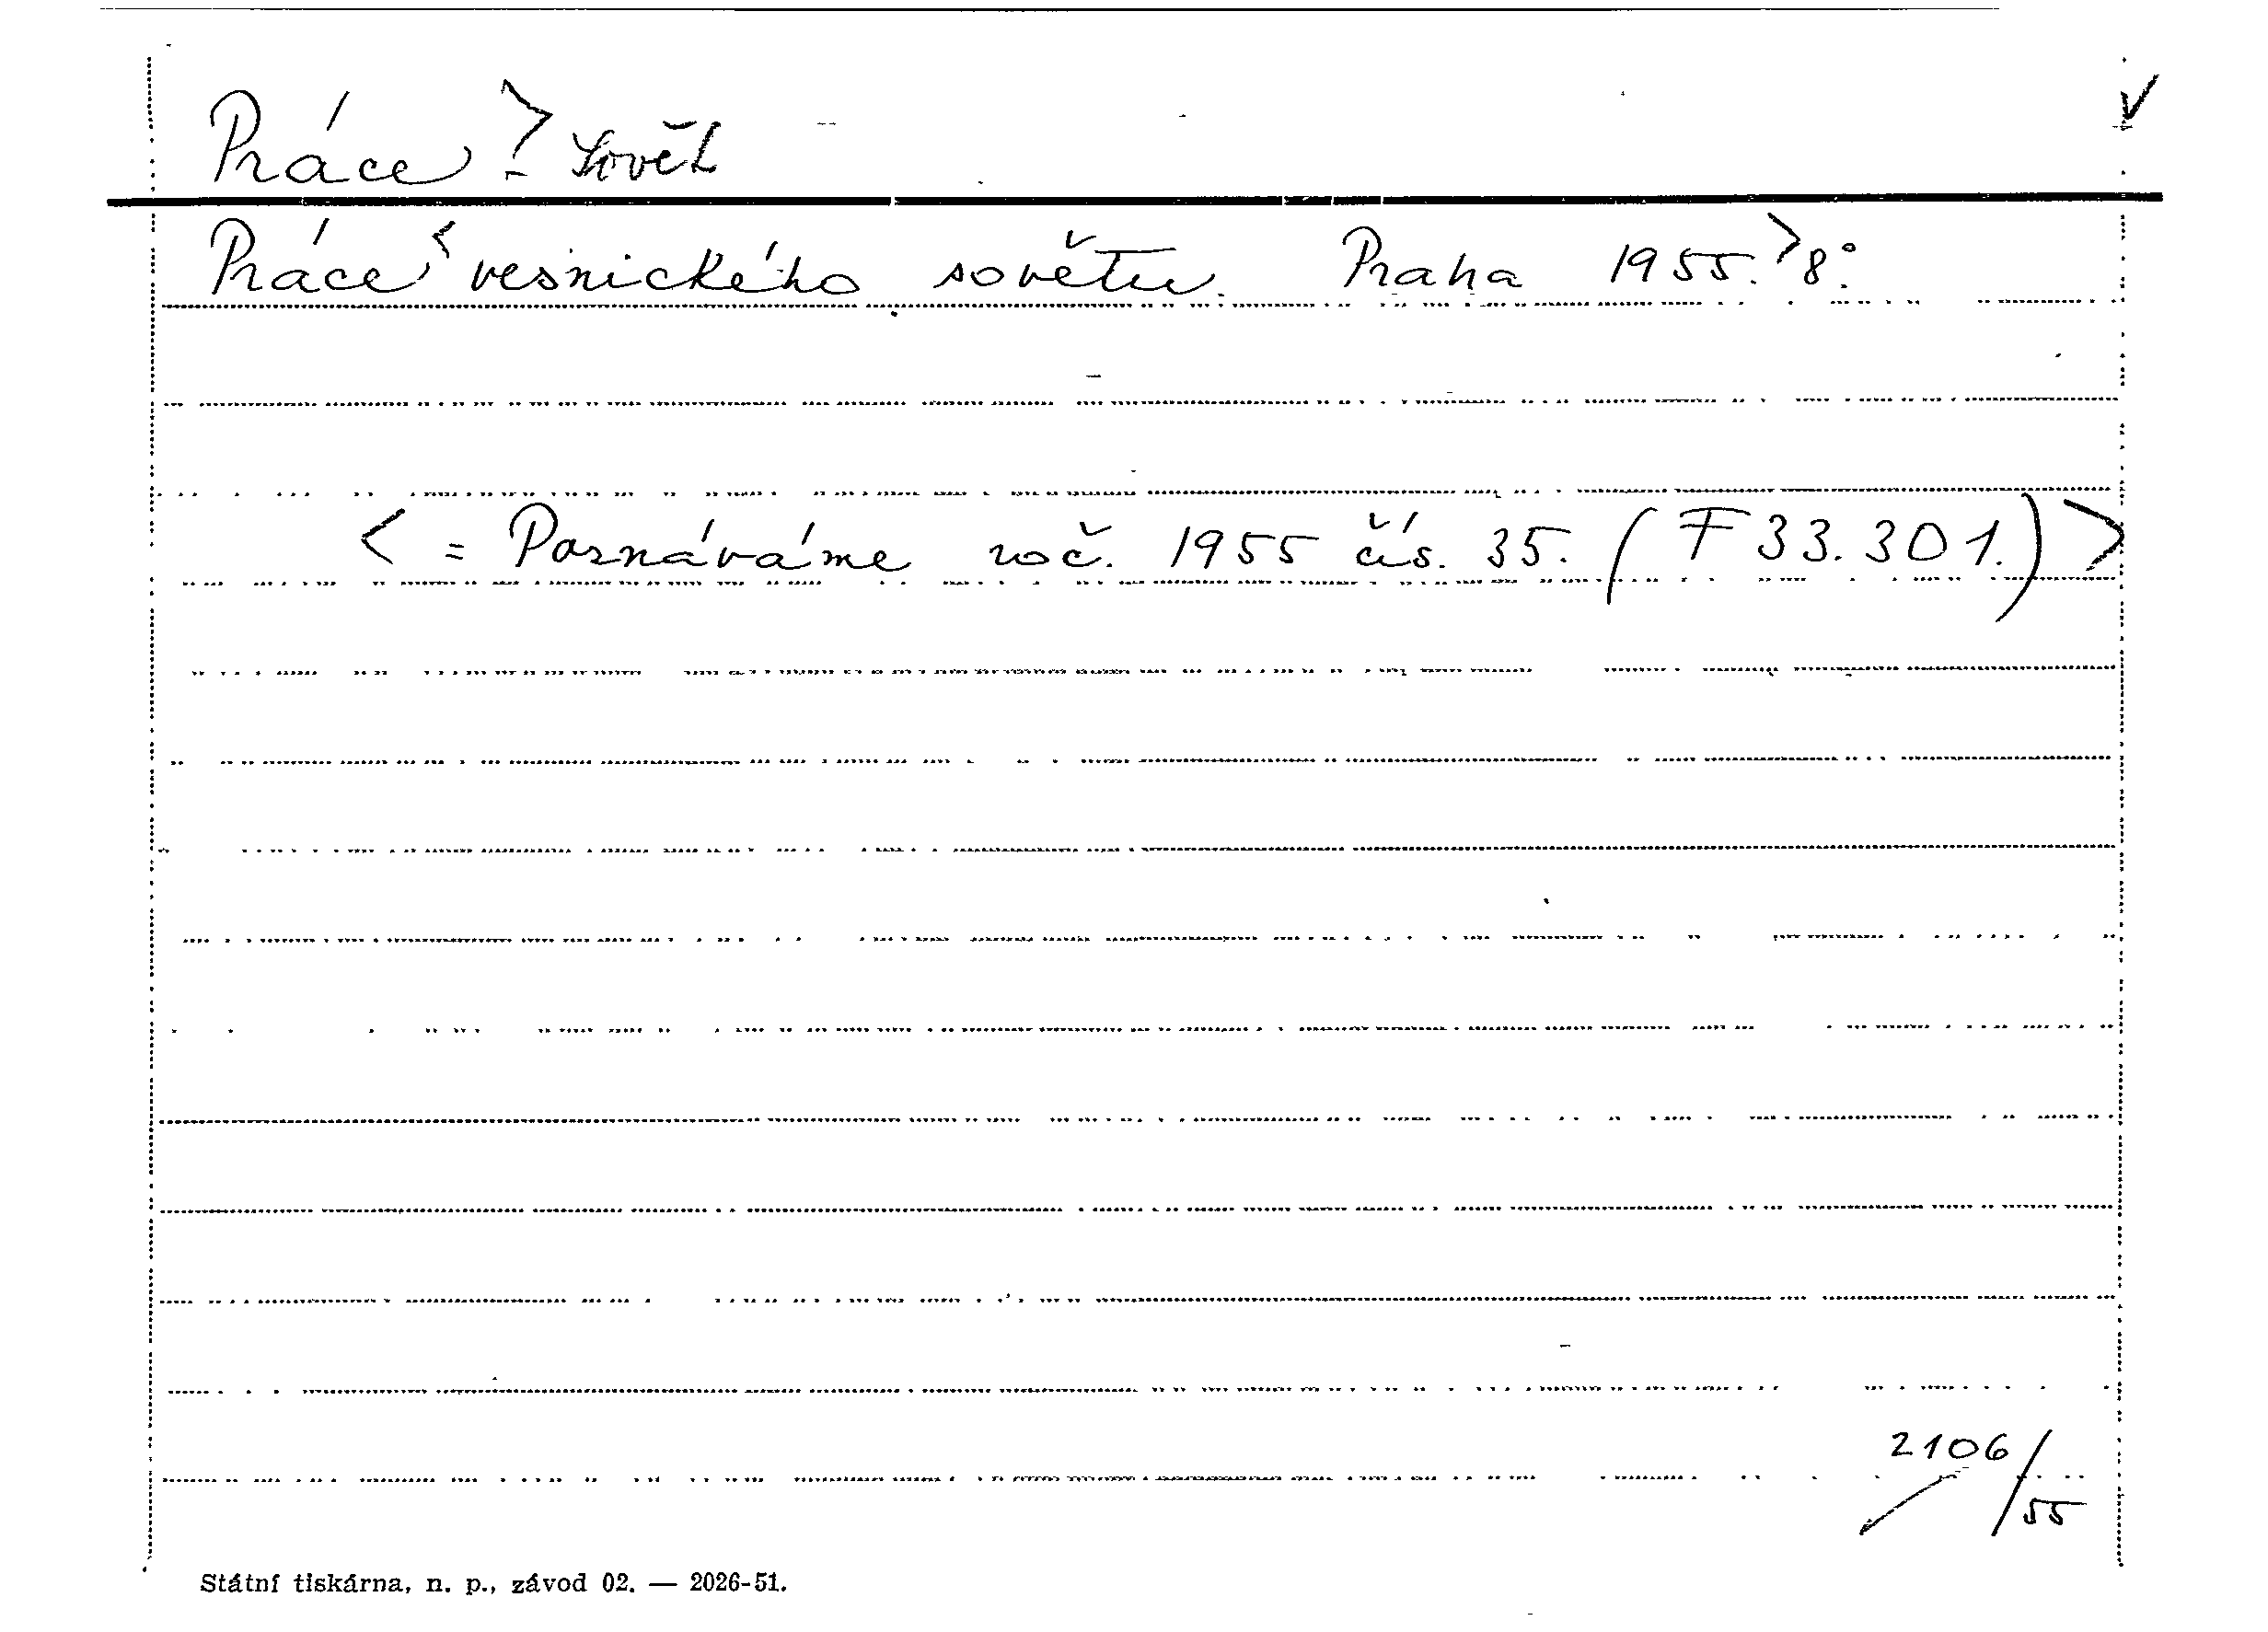 Práce > - Sovět
Práce < vesnického sovětu. Praha 1955. > 8°.
< = Poznáváme roč. 1955 čís. 35. (F 33.301.) >
2106/55
Státní tiskárna, n. p., závod 02. — 2026-51.